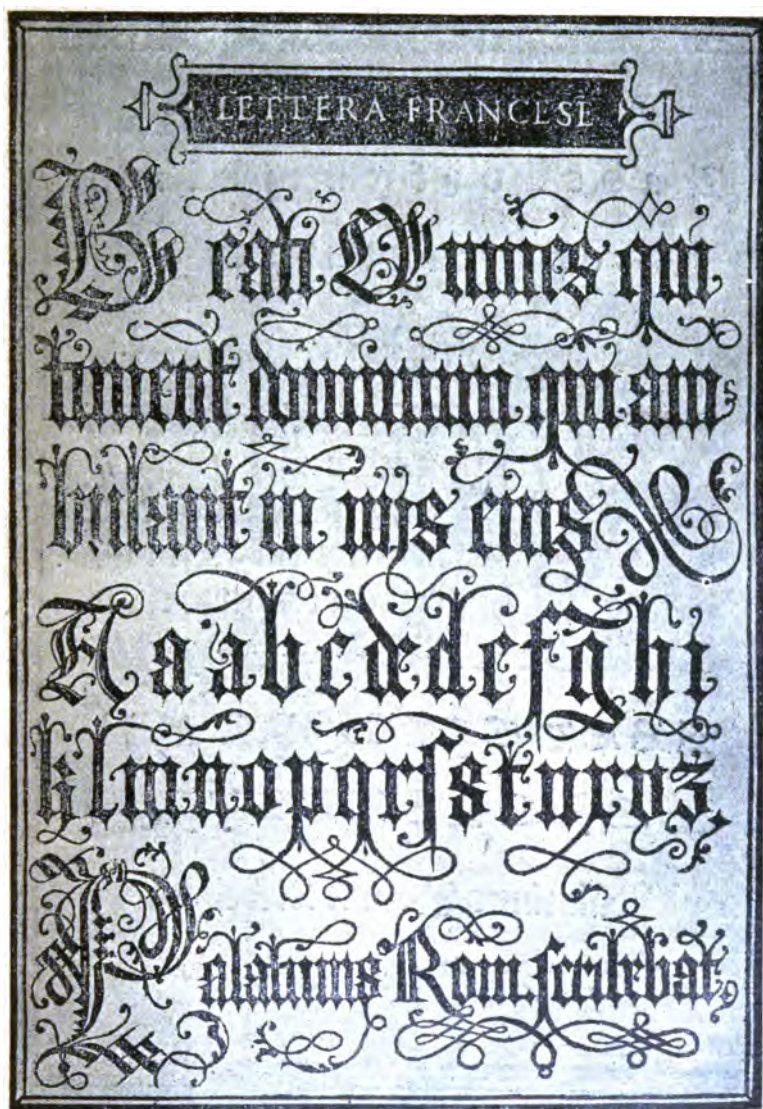 LETTERA FRANCESE
Beati Omnes qui
timent dominum qui am
bulant in vijs eius
A a a b c d e d e f g h i
k l m n o p q r ſ s t u x v z
Palatinus Rom. ſcribebat